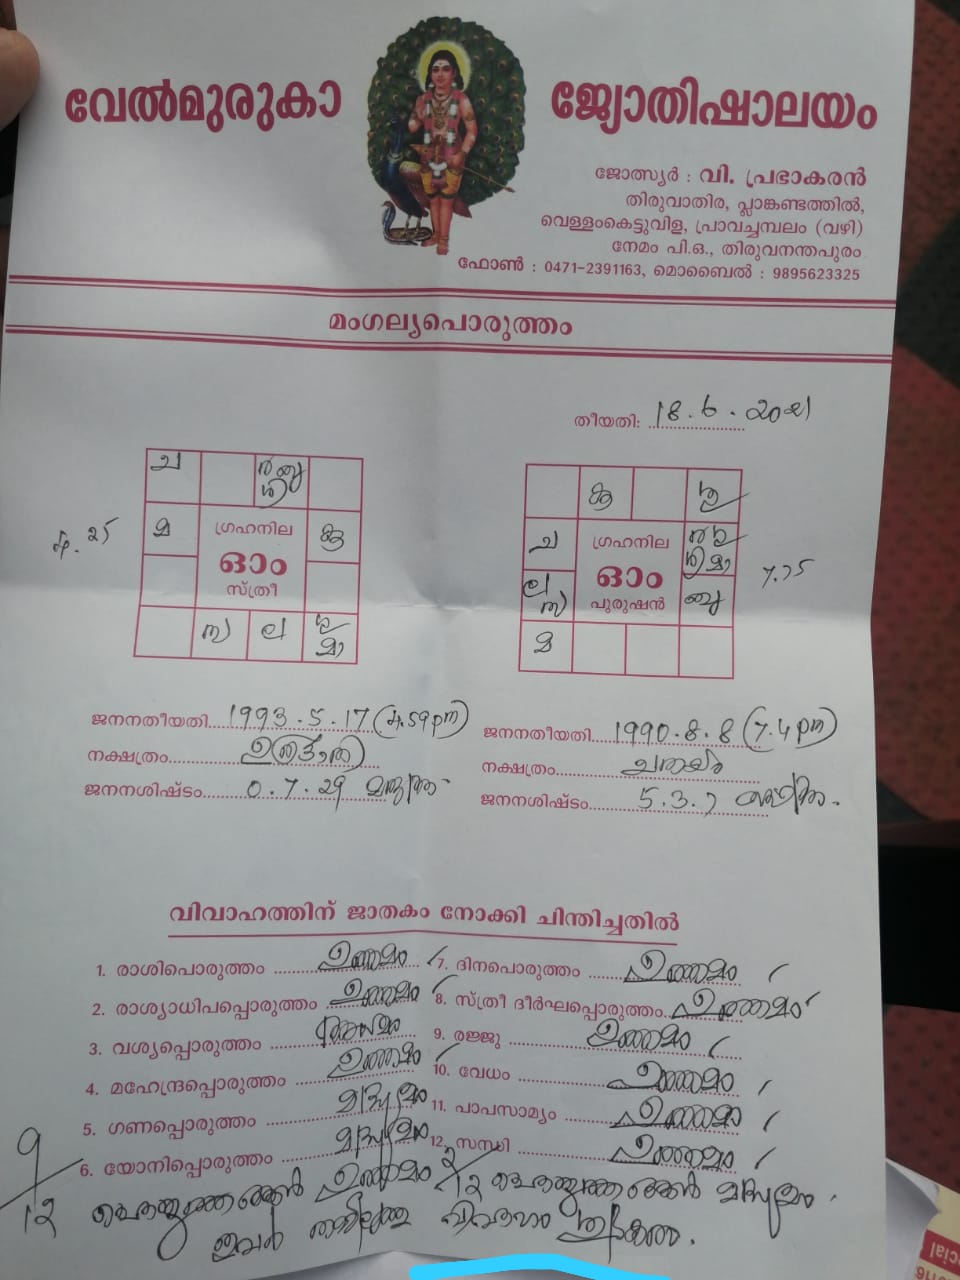 വേൽമുരുകാ ജ്യോതിഷാലയം
ജോത്സ്യർ : വി. പ്രഭാകരൻ
തിരുവാതിര, പ്ലാങ്കണ്ടത്തിൽ,
വെള്ളംകെട്ടുവിള, പ്രാവച്ചമ്പലം (വഴി)
നേമം പി.ഒ., തിരുവനന്തപുരം
ഫോൺ : 0471-2391163, മൊബൈൽ : 9895623325
മംഗല്യപൊരുത്തം
തീയതി: 18.6.2021
ച
മ ഗ്രഹനില
ഓം
സ്ത്രീ
സ ല
ച ഗ്രഹനില
ഓം
പുരുഷൻ
മ
7.75
ജനനതീയതി 1993.5.17 (4.59 pm)
നക്ഷത്രം ഉത്രട്ടാതി
ജനനശിഷ്ടം 0.7.29
ജനനതീയതി 1990.8.8 (7.4 pm)
നക്ഷത്രം ചതയം
ജനനശിഷ്ടം 5.3.7
വിവാഹത്തിന് ജാതകം നോക്കി ചിന്തിച്ചതിൽ
1. രാശിപൊരുത്തം ഉത്തമം
2. രാശ്യാധിപപ്പൊരുത്തം ഉത്തമം
3. വശ്യപ്പൊരുത്തം
4. മഹേന്ദ്രപ്പൊരുത്തം ഉത്തമം
5. ഗണപ്പൊരുത്തം മദ്ധ്യമം
6. യോനിപ്പൊരുത്തം മദ്ധ്യമം
7. ദിനപൊരുത്തം ഉത്തമം
8. സ്ത്രീ ദീർഘപ്പൊരുത്തം ഉത്തമം
9. രജ്ജു ഉത്തമം
10. വേധം ഉത്തമം
11. പാപസാമ്യം ഉത്തമം
12. സന്ധി ഉത്തമം
9/12 പൊരുത്തങ്ങൾ ഉത്തമം 2/12 പൊരുത്തങ്ങൾ മദ്ധ്യമം.
ഇവർ തമ്മിലുള്ള വിവാഹം